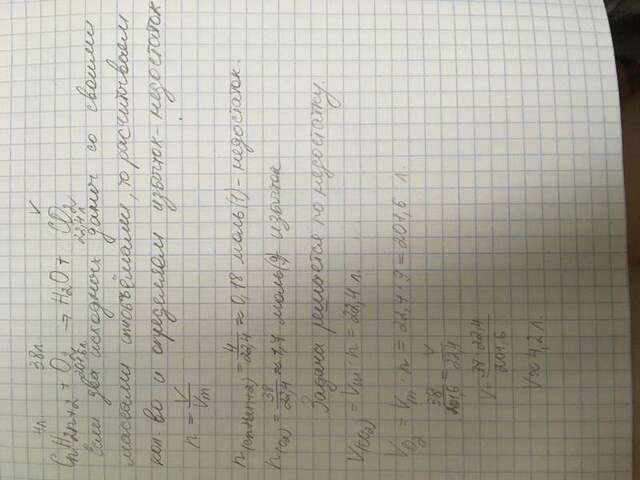 4л 38л V
CnH2n+2 + O2 → H2O + CO2
201,6л. 22,4л
Если два исходных даных со своими
массами и объёмами, то расчитываем
кол-во и определяем избыток-недостаток
n = V/Vm
n(CnH2n+2) = 4/22,4 ≈ 0,18 моль(1) - недостаток.
n(O2) = 38/22,4 ≈ 1,7 моль(9) избыток
Задача решается по недостатку.
V(CO2) = Vm · n = 22,4 л.
VO2 = Vm · n = 22,4 · 9 = 201,6 л.
38/201,6 = V/22,4
V = 38 · 22,4/201,6
V ≈ 4,2 л.